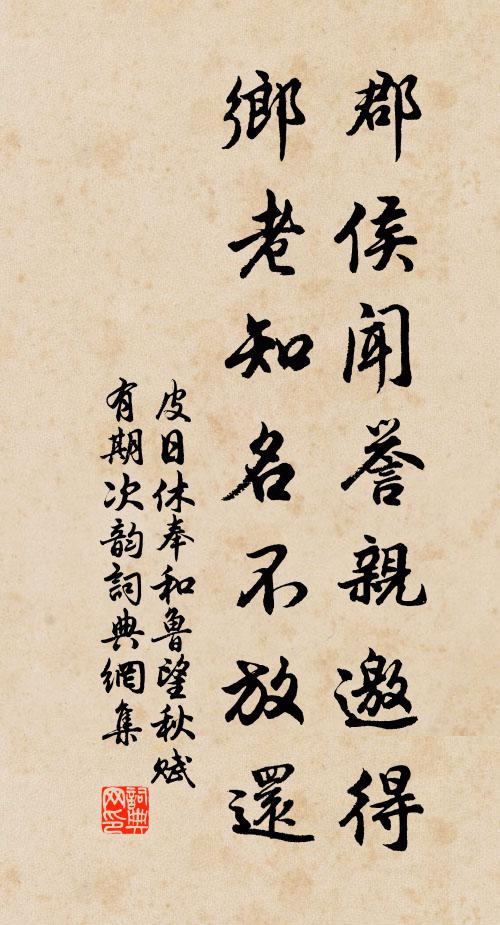 郡侯聞譽親邀得
鄉老知名不放還
皮日休奉和魯望秋賦
有期次韵詞典網集
詞典
网印